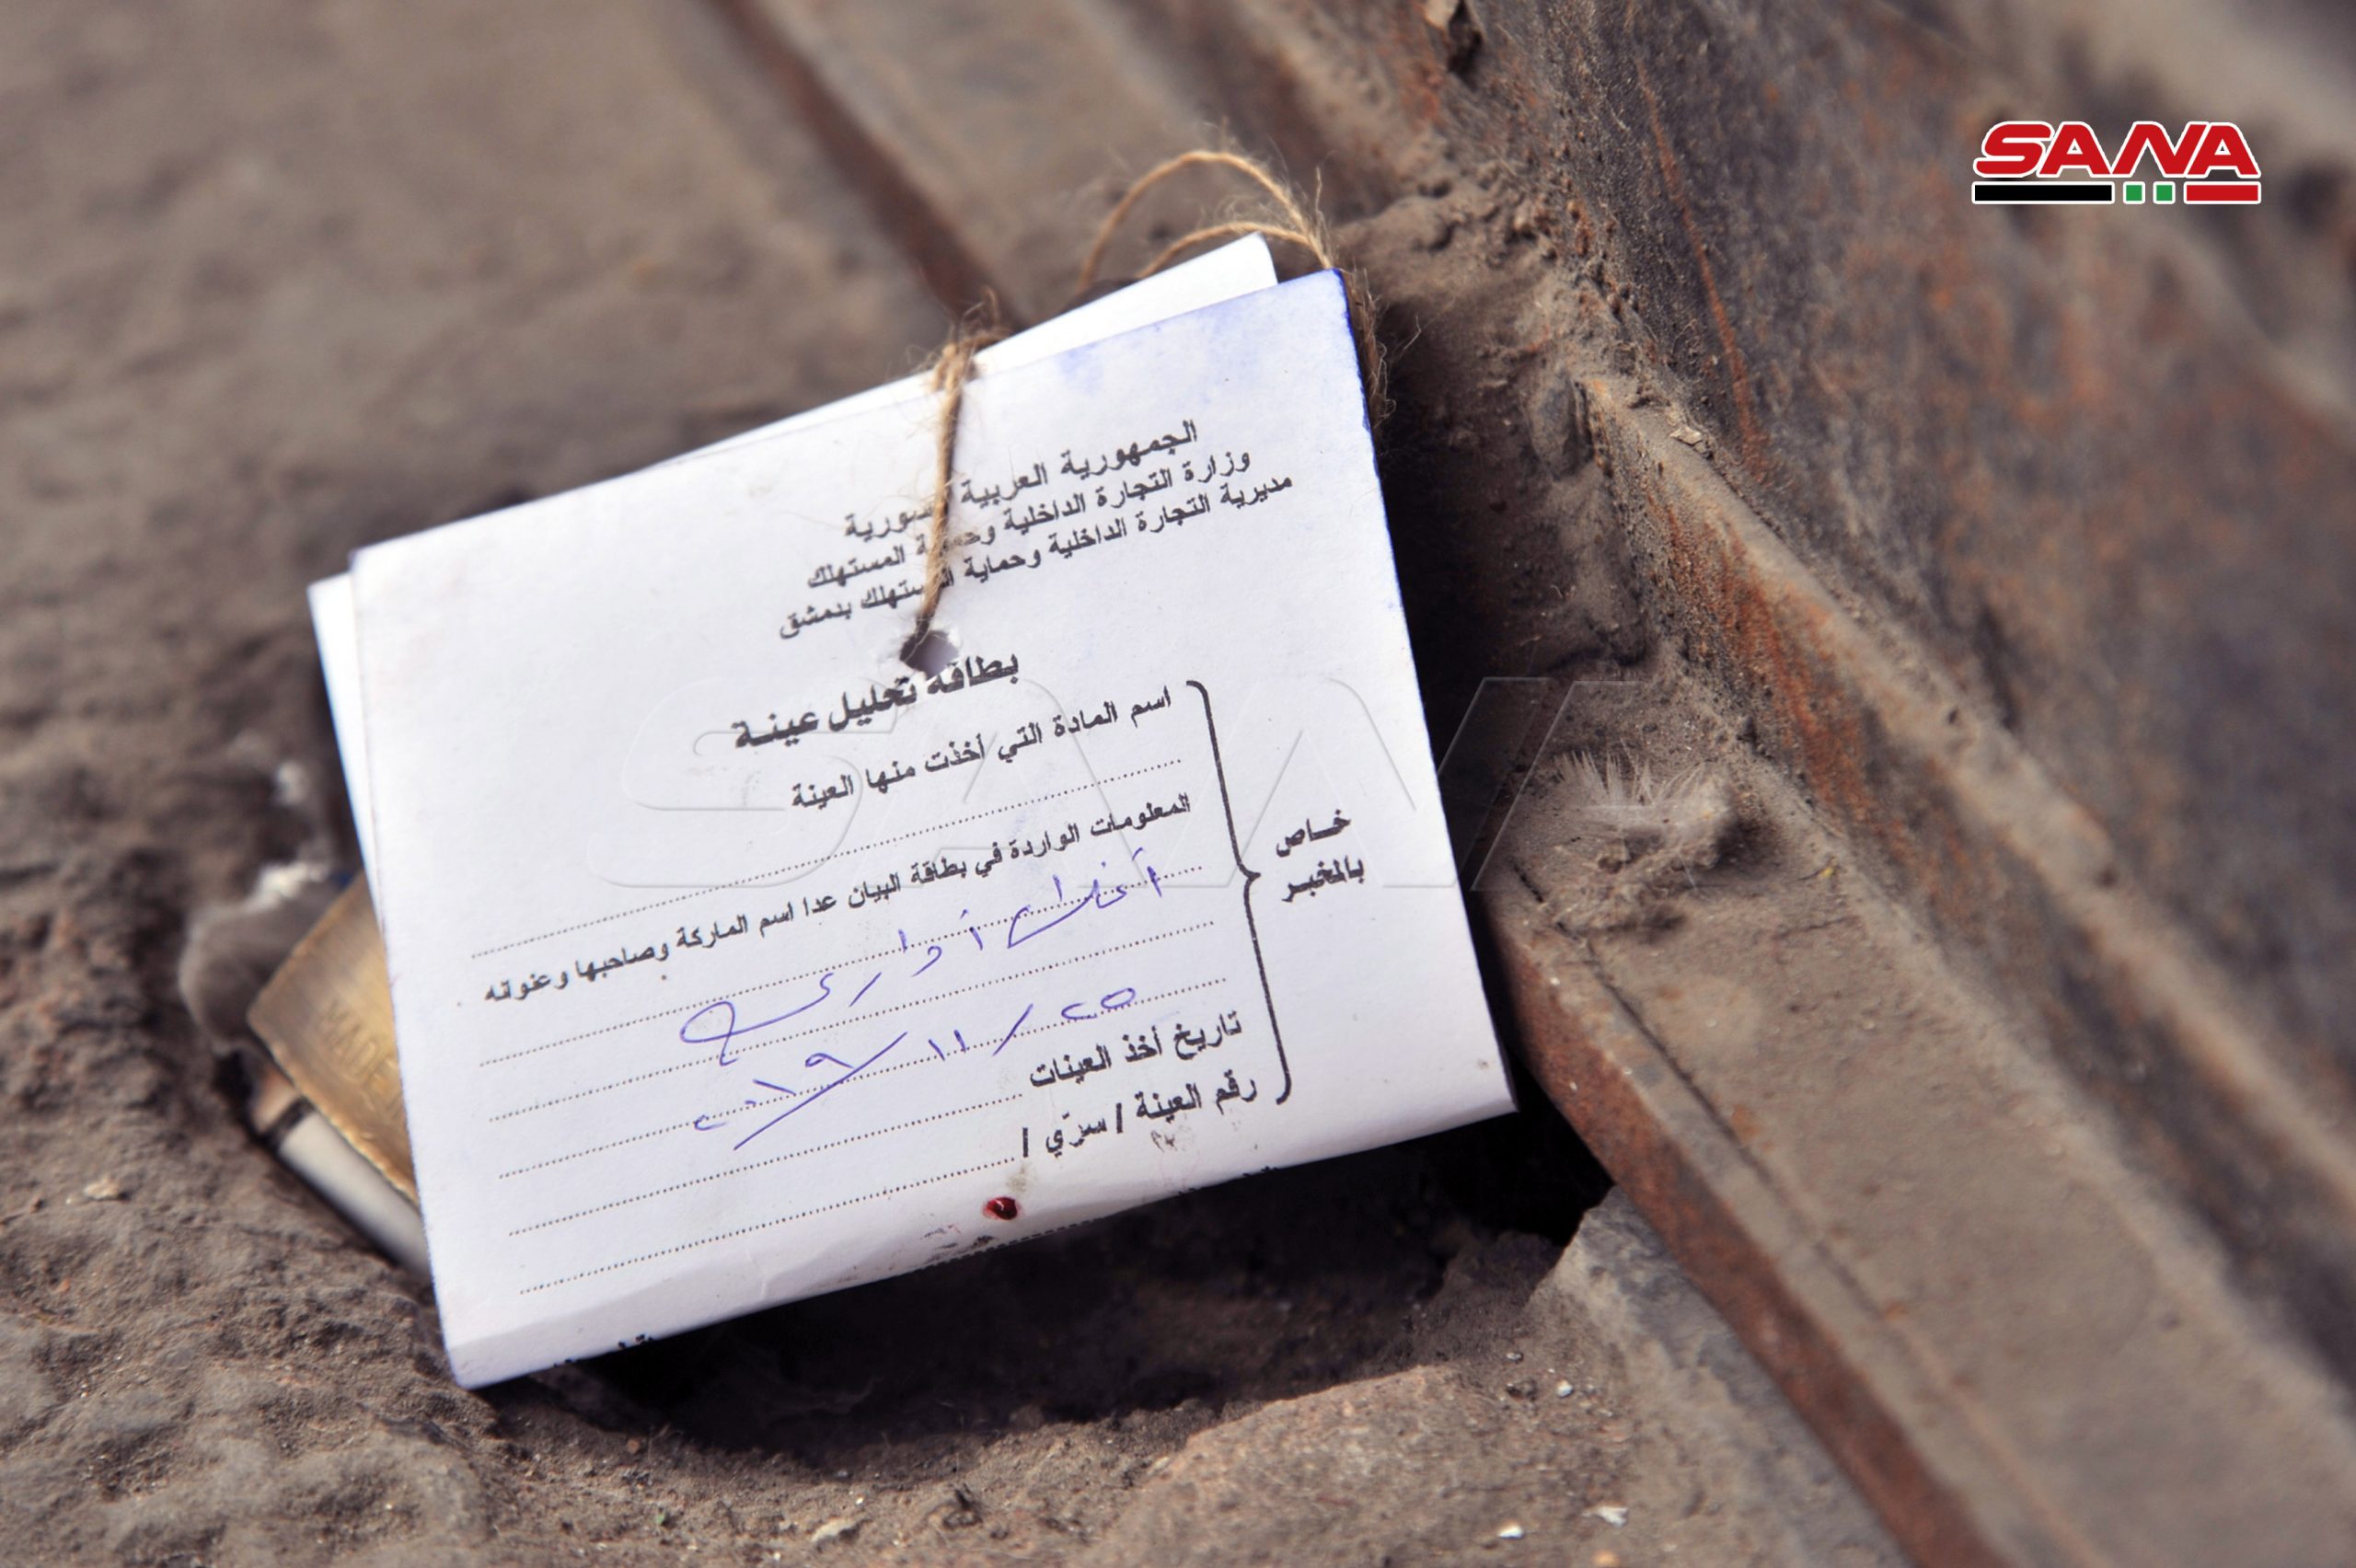 SANA
الجمهورية العربية السورية
وزارة التجارة الداخلية وحماية المستهلك
مديرية التجارة الداخلية وحماية المستهلك بدمشق
بطاقة تحليل عينة
اسم المادة التي أخذت منها العينة
المعلومات الواردة في بطاقة البيان عدا اسم الماركة وصاحبها وعنوانه
خاص
بالمخبر
٢٠١٩/١١/٢٥
تاريخ أخذ العينات
رقم العينة / سري /
SANA